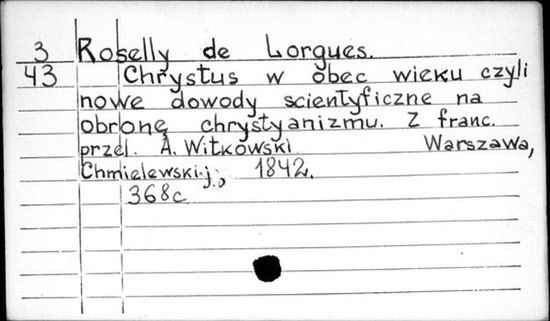 3 Roselly de Lorgues.
43 Chrystus w obec wieku czyli
nowe dowody scientyficzne na
obronę chrystyanizmu. Z franc.
przeł. A. Witkowski Warszawa,
Chmielewski.j.; 1842.
368c